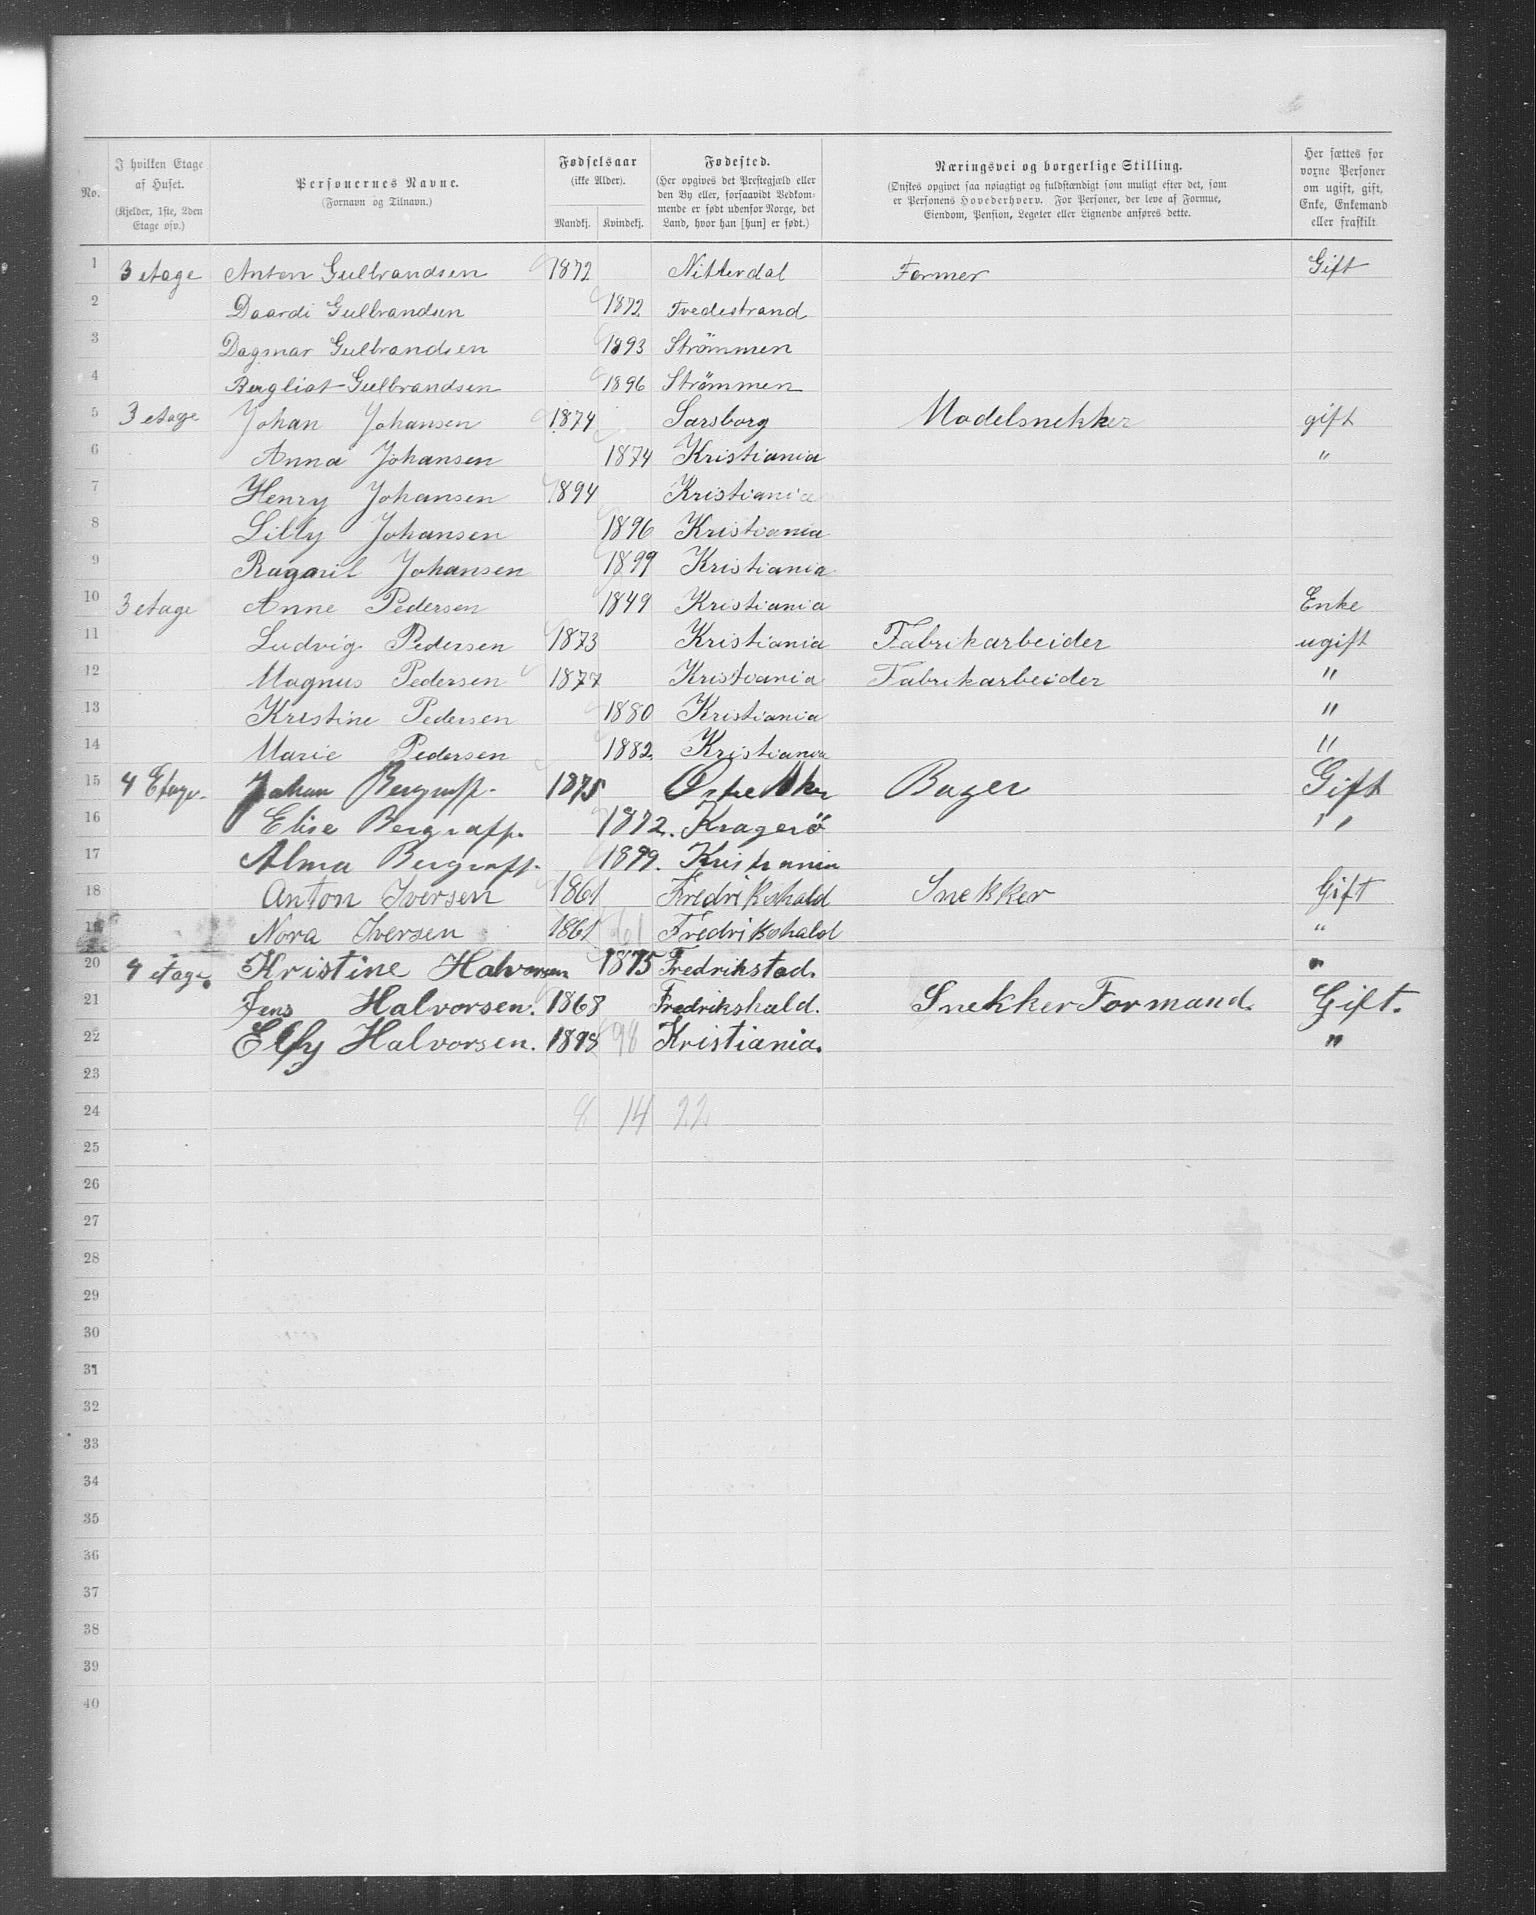 No.
I hvilken Etage af Huset. (Kjelder, 1ste, 2den Etage osv.)
Personernes Navne. (Fornavn og Tilnavn.)
Fødselsaar (ikke Alder). Mandkj. Kvindekj.
Fødested. (Her opgives det Prestegjæld eller den By eller, forsaavidt Vedkommende er født udenfor Norge, det Land, hvor han [hun] er født.)
Næringsvei og borgerlige Stilling. (Ønskes opgivet saa nøiagtigt og fuldstændigt som muligt efter det, som er Personens Hovederhverv. For Personer, der leve af Formue, Eiendom, Pension, Legater eller Lignende anføres dette.
Her sættes for voxne Personer om ugift, gift, Enke, Enkemand eller fraskilt
1 3 etage Anton Gulbrandsen 1872 Nitterdal Former Gift
2 Daardi Gulbrandsen 1872 Tvedestrand
3 Dagmar Gulbrandsen 1893 Strömmen
4 Bergliot Gulbrandsen 1896 Strømmen
5 3 etage Johan Johansen 1874 Sarsborg Modelsnekker gift
6 Anna Johansen 1874 Kristiania "
7 Henry Johansen 1894 Kristiania
8 Lilly Johansen 1896 Kristiania
9 Ragnil Johansen 1899 Kristiania
10 3 etage Anne Pedersen 1849 Kristiania Enke
11 Ludvig Pedersen 1873 Kristiania Fabrikarbeider ugift
12 Magnus Pedersen 1877 Kristiania Fabrikarbeider "
13 Kristine Pedersen 1880 Kristiania "
14 Marie Pedersen 1882 Kristiania "
15 4 Etage. Johan Bergraff. 1875 Østre Aker Bager Gift
16 Elise Bergraff. 1872. Kragerö "
17 Alma Bergraff. 1899. Kristiania
18 Anton Iversen 1861 Fredrikshald Snekker Gift
19 Nora Iversen 1861 61 Fredrikshald "
20 4 etage. Kristine Halvorsen 1875 Fredrikstad. "
21 Jens Halvorsen. 1868 Fredrikshald. Snekker Formand. Gift.
22 Elfy Halvorsen. 1898 98 Kristiania. "
23
24 8 14 22
25
26
27
28
29
30
31
32
33
34
35
36
37
38
39
40